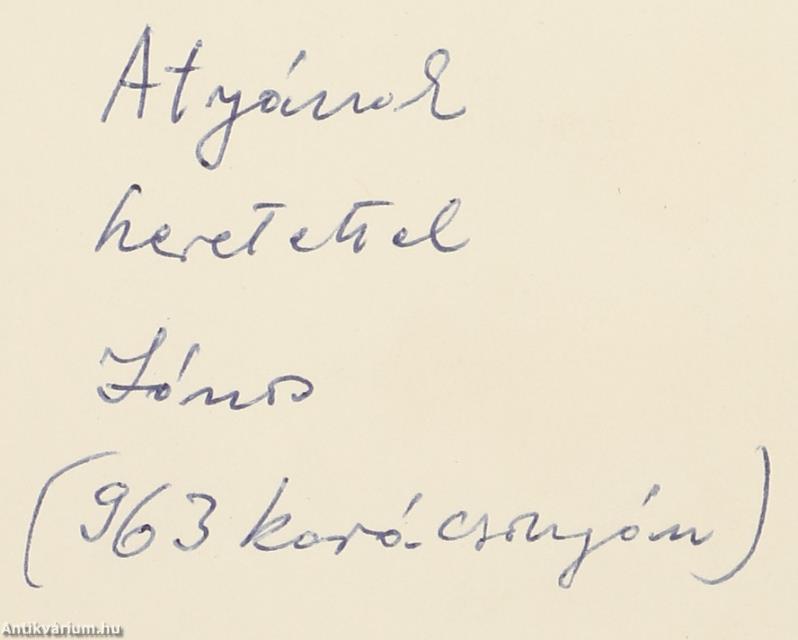 Atyának
szeretettel
János
(963 karácsonyán)
Antikvárium.hu